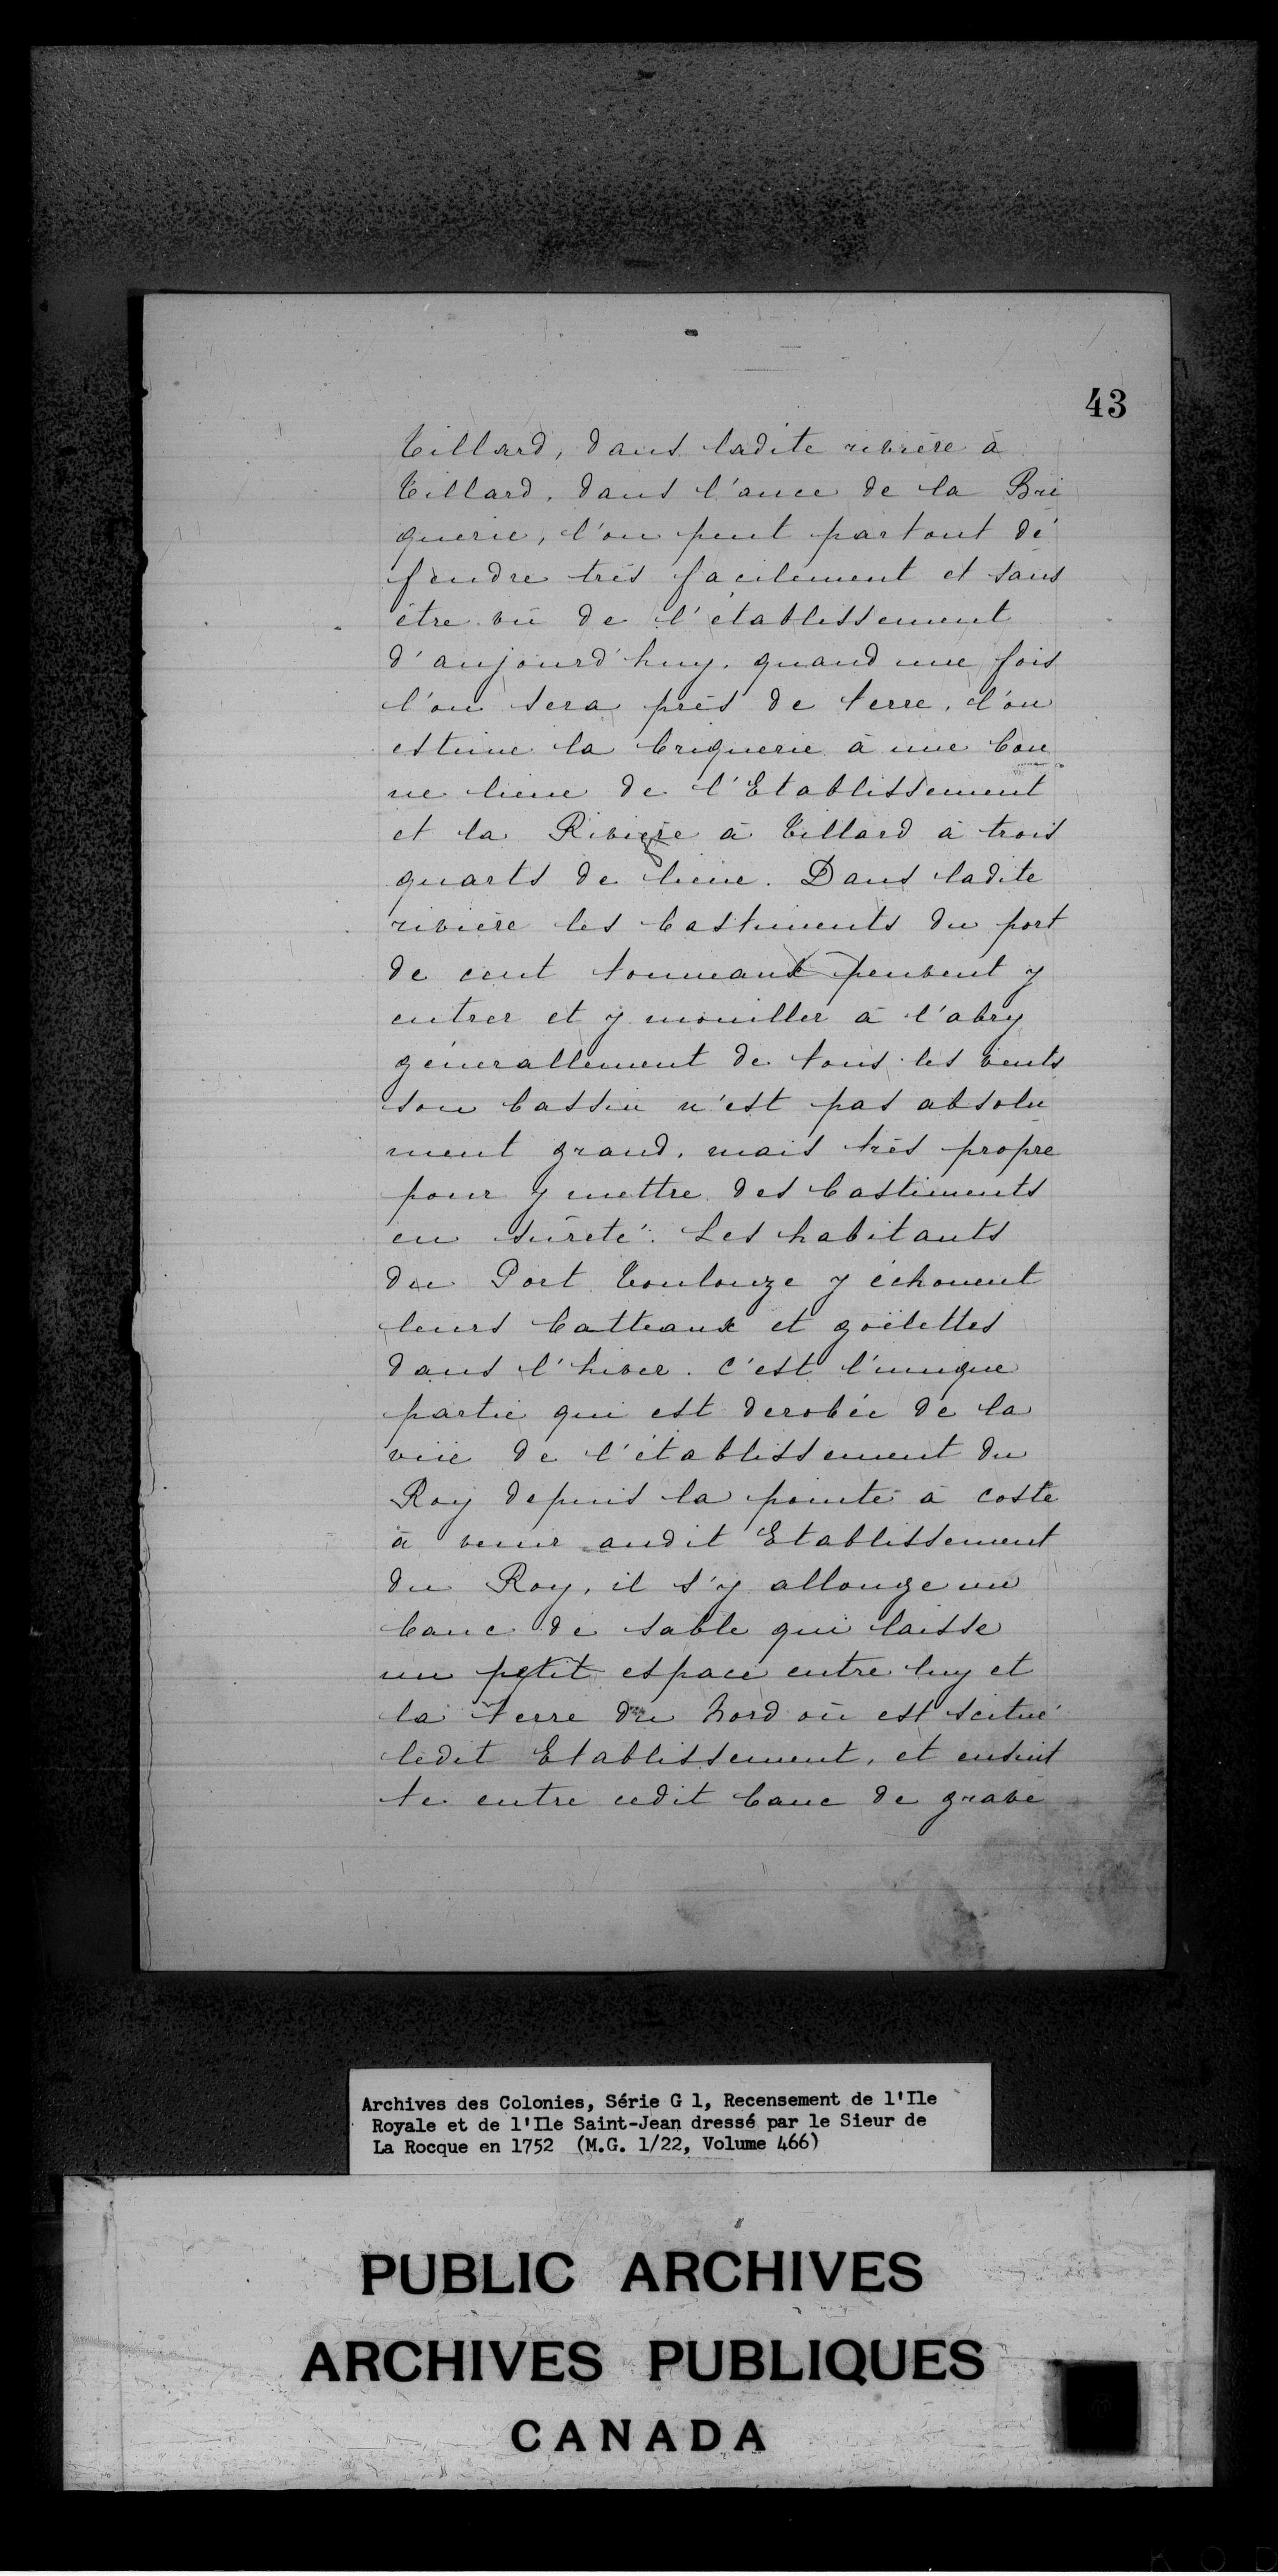 43
Tillard, dans ladite rivière à
Tillard, dans l'ance de la Bri
querie, l'on peut partout dé
fendre très facilement et sans
être vû de l'établissement
d'aujourd'huy, quand une fois
l'on sera près de terre, l'on
estime la briquerie à une bon
ne lieue de l'Etablissement
et la Rivière à Tillard à trois
quarts de lieue. Dans ladite
rivière les bastiments du port
de cent tonneaux peuvent y
entrer et y mouiller à l'abry
générallement de tous les vents
son bassin n'est pas absolu
ment grand, mais très propre
pour y mettre des bastiments
en sûreté. Les habitants
du Port Toulouze y échouent
leurs batteaux et goëlettes
dans l'hiver. C'est l'unique
partie qui est derobée de la
vüe de l'établissement du
Roy depuis la pointe à coste
à venir audit Etablissement
du Roy, il s'y allonge un
banc de sable qui laisse
un petit espace entre luy et
la terre du Nord où est scitué
ledit Etablissement, et ensuit
te entre cedit banc de grave
Archives des Colonies, Série G 1, Recensement de l'Ile
Royale et de l'Ile Saint-Jean dressé par le Sieur de
La Rocque en 1752 (M.G. 1/22, Volume 466)
PUBLIC ARCHIVES
ARCHIVES PUBLIQUES
CANADA